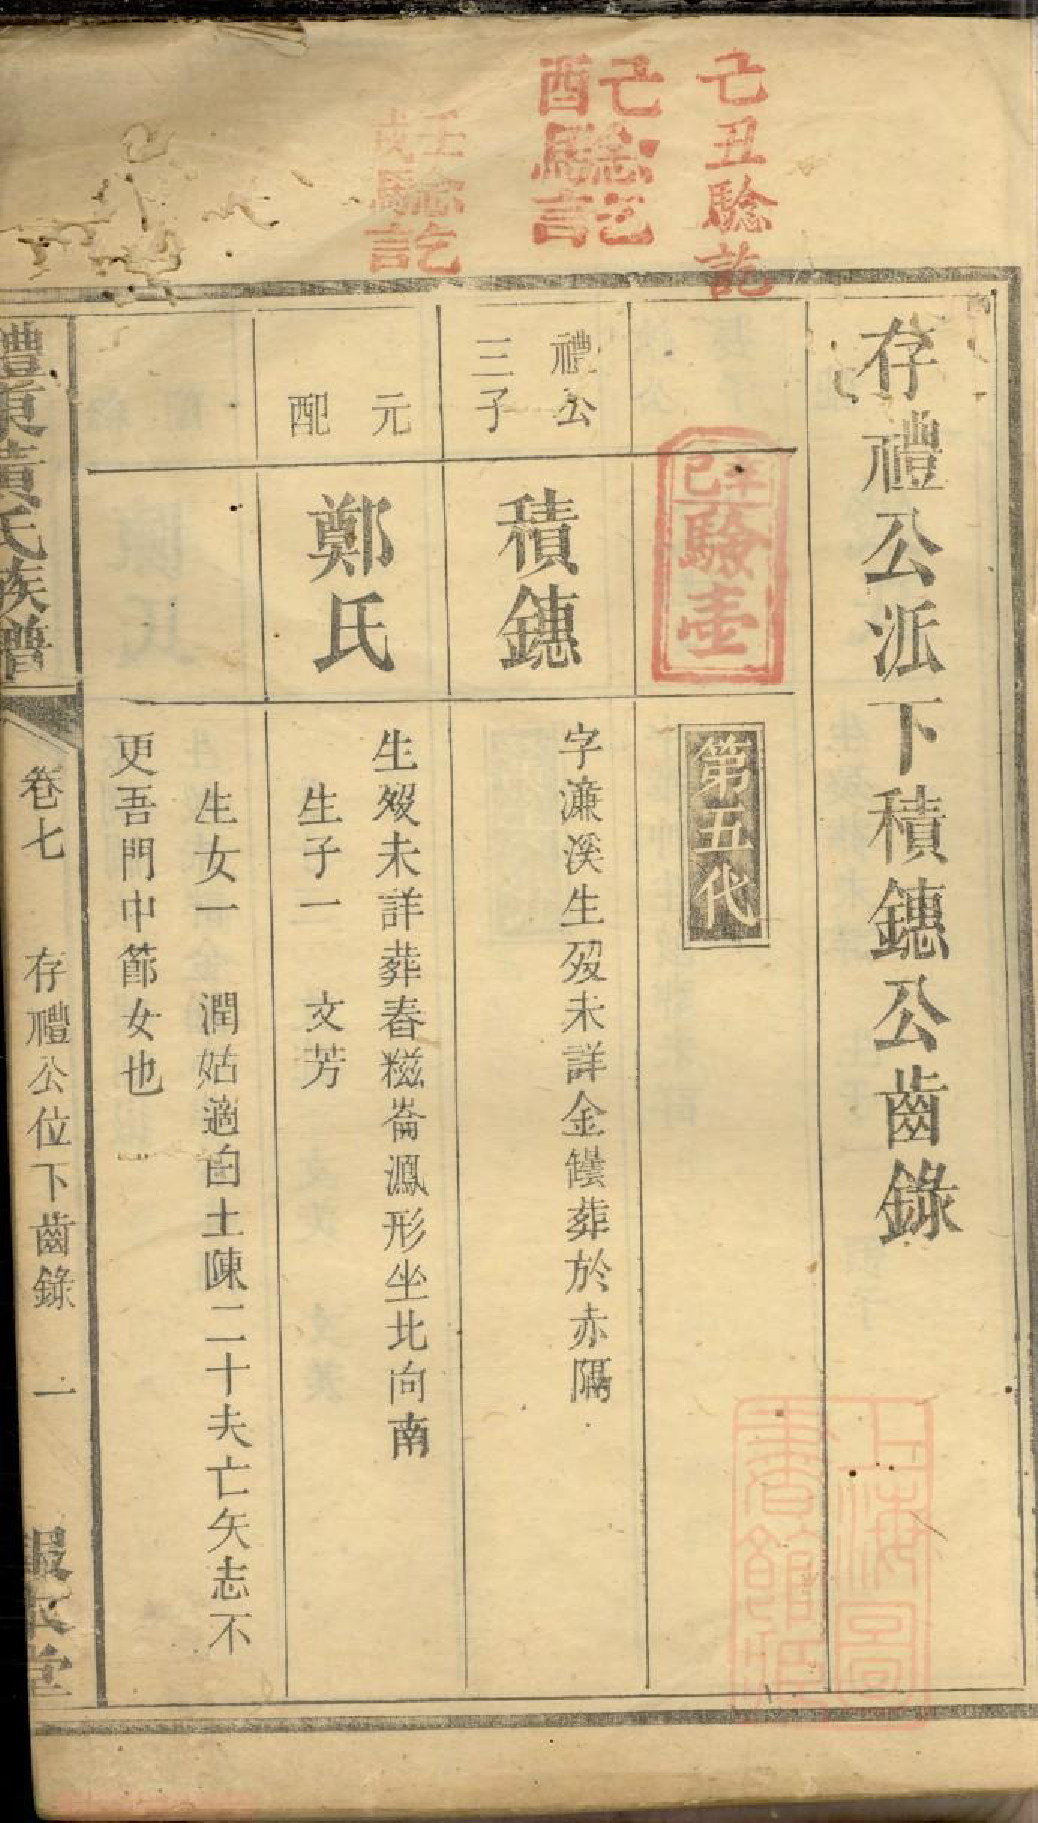 己丑驗訖
己酉驗訖
壬戌驗訖
存禮公派下積鏸公齒錄
辛巳驗壹
第五代
禮公三子
積鏸
字濂溪生歿未詳金鏤葬於赤隔
元配
鄭氏
生歿未詳葬春糍崙鳳形坐北向南
生子一 文芳
生女一 潤姑適白土陳二十夫亡矢志不
更吾門中節女也
氏族譜
卷七 存禮公位下齒錄 一
堂
上海圖書館藏